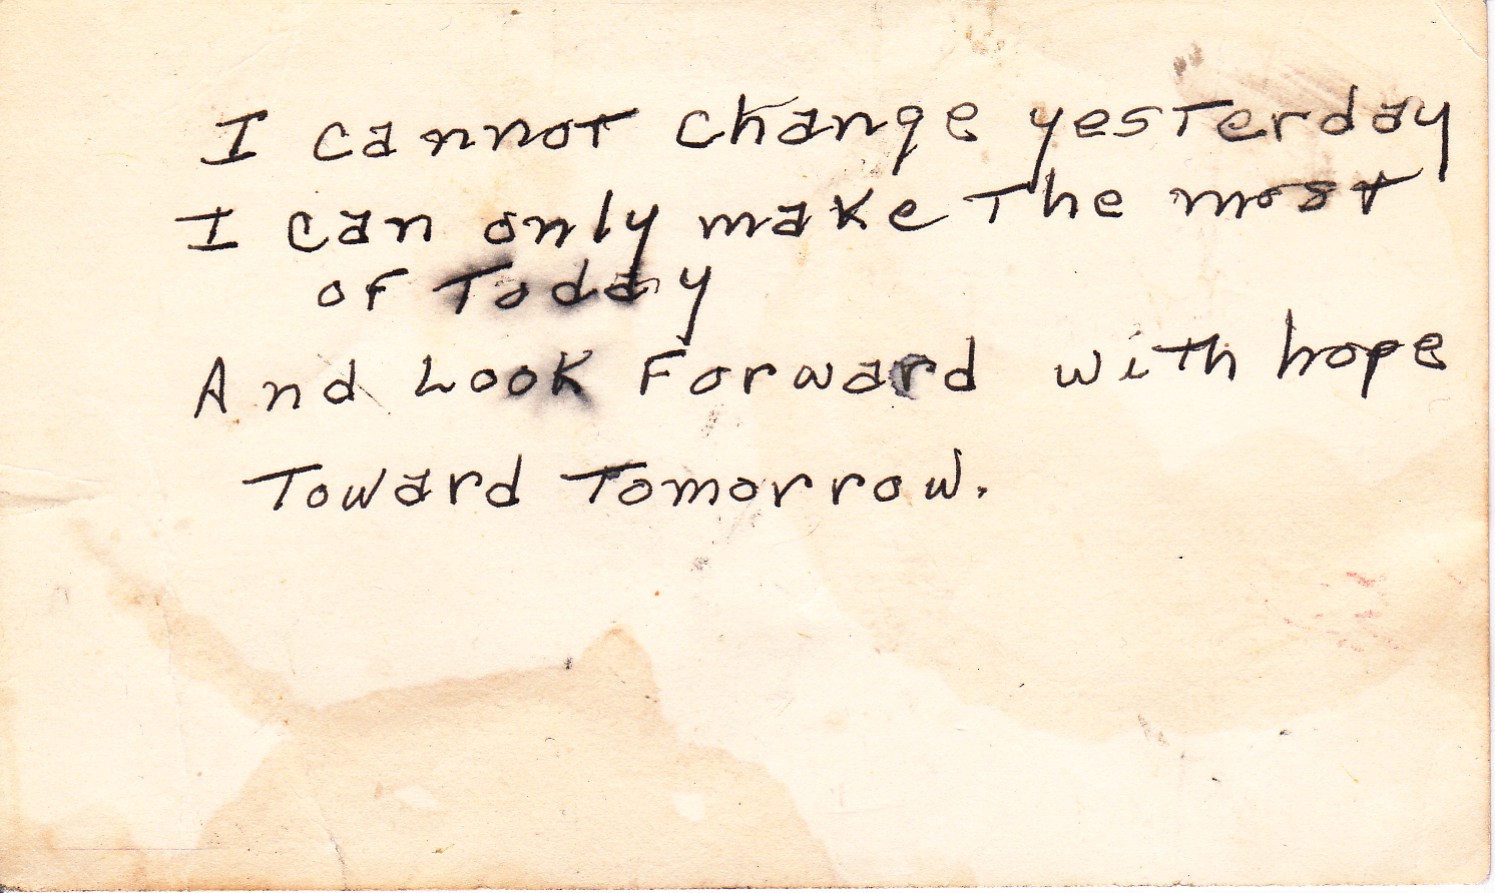 I cannot change yesterday
I can only make The most
of Today
And Look Forward with hope
Toward Tomorrow.